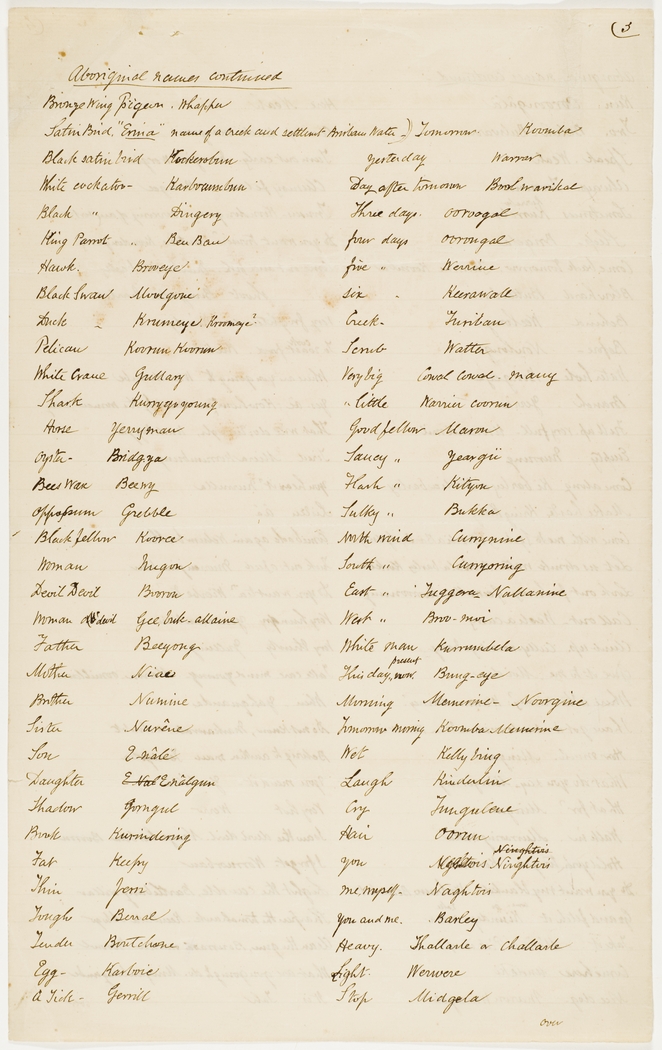 (3
Aboriginal names continued
Bronze Wing Pigeon. Whapper
Satin Bird, "Erina" name of a creek and settlement Brisbane Water
Black satin bird
White cockatoo - Karboumbun
Black " Dingery
King Parrot " Ben Bau
Hawk. Broveye
Black Swan Moulgoni
Duck - Krumeye Kroomeye
Pelican Koorun Koorun
White Crane Gullary
Shark
Horse Yerryman
Oyster - Bridgya
Bees Wax Beewy
Oppossum Grebble
Black fellow Kooree
Woman Nugon
Devil Devil Boroon
Woman devil
Father Beeyong
Mother
Brother Numine
Sister Nurêne
Son Enâlê
Daughter E Nal Enâlgun
Shadow Gorngul
Book Kurindering
Fat Keepy
Thin Jerri
Tough Berral
Tender Boutchone
Egg - Karboie
A Tick - Gerrill
Tomorrow. Koomba
Yesterday Warrar
Day after tomorrow Bool warikal
Three days. oorogal
four days oorougal
five " Werrine
six " Keerawall
Creek - Turiban
Scrub Watter
Very big Cowal Cowal. many
" little Warrier coorun
Good fellow Maron
Saucy " Yeargii
Flash " Kityon
Sulky " Bukka
North wind Currynine
South " Curryoring
East " Tuggera Nullanine
West " Broo-moi
White man Kurrumbela
This day, present now. Bung-eye
Morning Memerine - Noorgine
Tomorrow morning Koomba Memerine
Wet Kelly bing
Laugh Kindulin
Cry Tungulene
Hair Oorun
You Ninghtois Ninghtois
me, myself - Naghtois
You and me. Barley
Heavy. Thallarle or Challarle
Light. Werwere
Stop Midgela
over